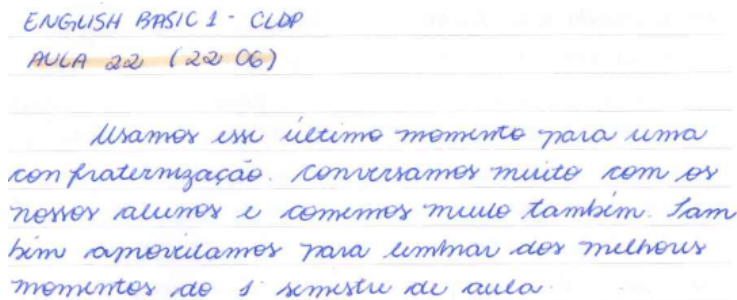 ENGLISH BASIC 1 - CLDP
AULA 22 (22 06)
Usamos esse último momento para uma
confraternização. Conversamos muito com os
nossos alunos e comemos muito também. Tam
bém aproveitamos para lembrar dos melhores
momentos do 1 semestre de aula.